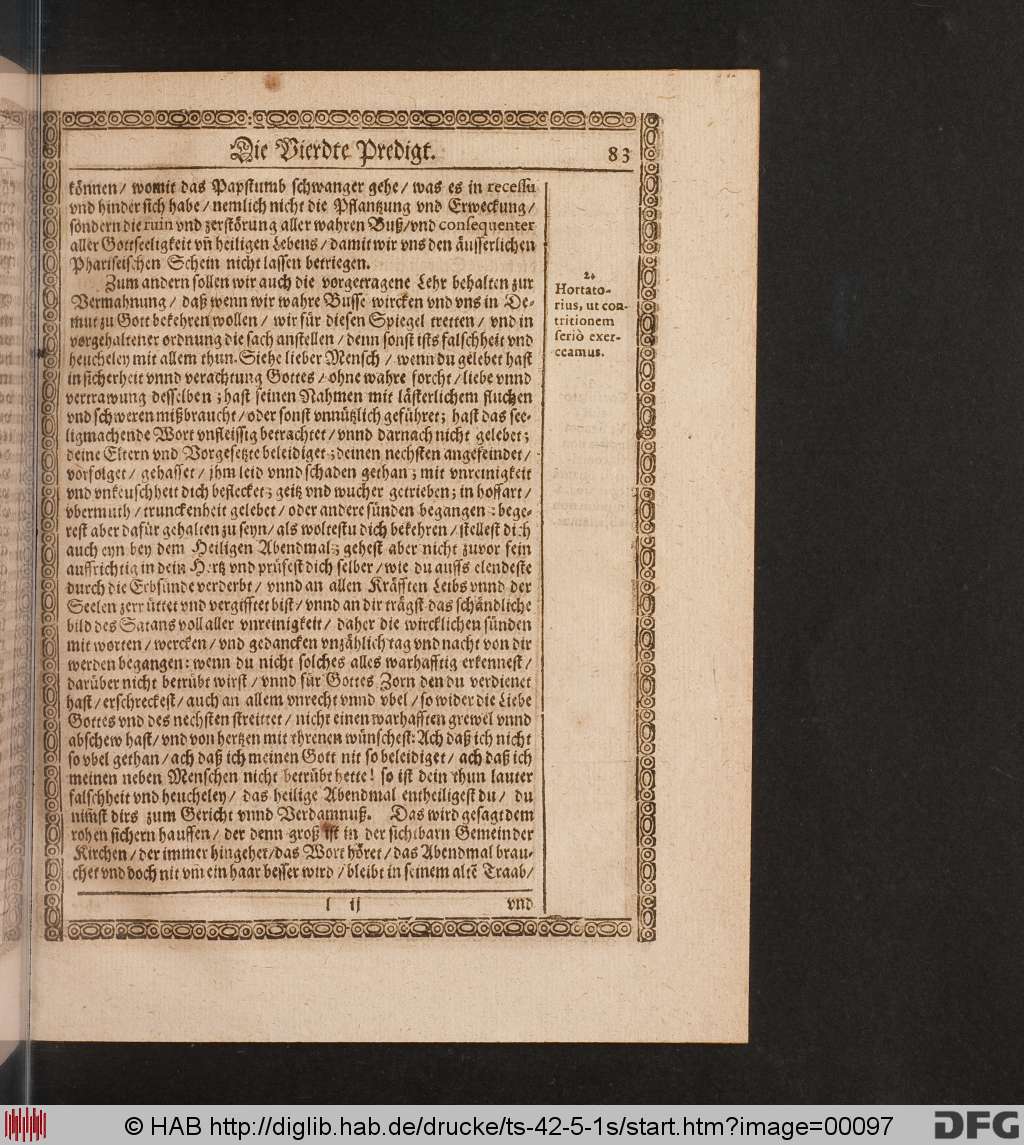 Die Vierdte Predigt. 83
können / womit das Papstumb schwanger gehe / was es in recessu
vnd hinder sich habe / nemlich nicht die Pflantzung vnd Erweckung /
sondern die ruin vnd zerstörung aller wahren Buß / vnd consequenter
aller Gottseeligkeit vñ heiligen Lebens / damit wir vns den äusserlichen
Phariseischen Schein nicht lassen betriegen.
Zum andern sollen wir auch die vorgetragene Lehr behalten zur
Vermahnung / daß wenn wir wahre Busse wircken vnd vns in De-
mut zu Gott bekehren wollen / wir für diesen Spiegel tretten / vnd in
vorgehaltener ordnung die sach anstellen / denn sonst ists falschheit vnd
heucheley mit allem thun. Siehe lieber Mensch / wenn du gelebet hast
in sicherheit vnnd verachtung Gottes / ohne wahre forcht / liebe vnnd
vertrawung desselben ; hast seinen Nahmen mit lästerlichem fluchen
vnd schweren mißbraucht / oder sonst vnnützlich geführet ; hast das see-
ligmachende Wort vnfleissig betrachtet / vnnd darnach nicht gelebet ;
deine Eltern vnd Vorgesetzte beleidiget ; deinen nechsten angefeindet /
vorfolget / gehasset / jhm leid vnnd schaden gethan ; mit vnreinigkeit
vnd vnkeuschheit dich beflecket ; geitz vnd wucher getrieben ; in hoffart /
vbermuth / trunckenheit gelebet / oder andere sünden begangen : bege-
rest aber dafür gehalten zu seyn / als woltestu dich bekehren / stellest dich
auch eyn bey dem Heiligen Abendmal ; gehest aber nicht zuvor fein
auffrichtig in dein Hertz vnd prüfest dich selber / wie du auffs elendeste
durch die Erbsünde verderbt / vnnd an allen Kräfften Leibs vnnd der
Seelen zerrüttet vnd vergifftet bist / vnnd an dir trägst das schändliche
bild des Satans voll aller vnreinigkeit / daher die wircklichen sünden
mit worten / wercken / vnd gedancken vnzählich tag vnd nacht von dir
werden begangen : wenn du nicht solches alles warhafftig erkennest /
darüber nicht betrübt wirst / vnnd für Gottes Zorn den du verdienet
hast / erschreckest / auch an allem vnrecht vnnd vbel / so wider die Liebe
Gottes vnd des nechsten streittet / nicht einen warhafften grewel vnnd
abschew hast / vnd von hertzen mit threnen wünschest : Ach daß ich nicht
so vbel gethan / ach daß ich meinen Gott nit so beleidiget / ach daß ich
meinen neben Menschen nicht betrübt hette ! so ist dein thun lauter
falschheit vnd heucheley / das heilige Abendmal entheiligest du / du
nim̃st dirs zum Gericht vnnd Verdamnuß. Das wird gesagt dem
rohen sichern hauffen / der denn groß ist in der sichtbarn Gemein der
Kirchen / der immer hingehet / das Wort höret / das Abendmal brau-
chet vnd doch nit vm̃ ein haar besser wird / bleibt in seinem altẽ Traab /
l ij vnd
2.
Hortato-
rius, ut con-
tritionem
seriò exer-
ceamus.
© HAB http://diglib.hab.de/drucke/ts-42-5-1s/start.htm?image=00097
DFG